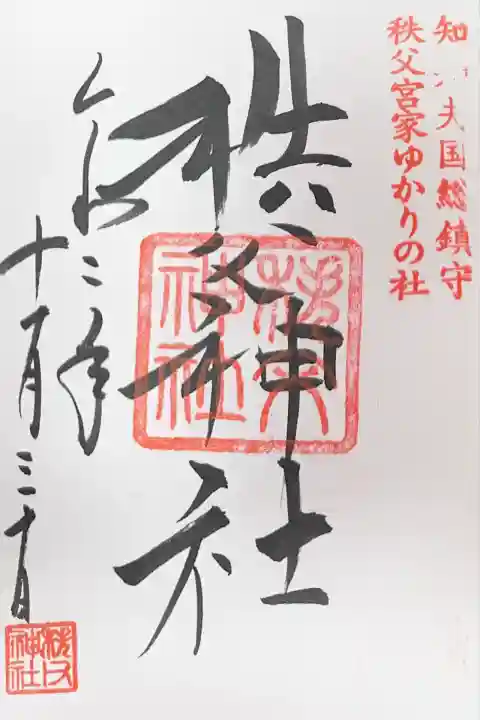 知 夫国総鎮守
秩父宮家ゆかりの社
秩父神社
秩父神社
令和二年
十一月三十日
秩父神社